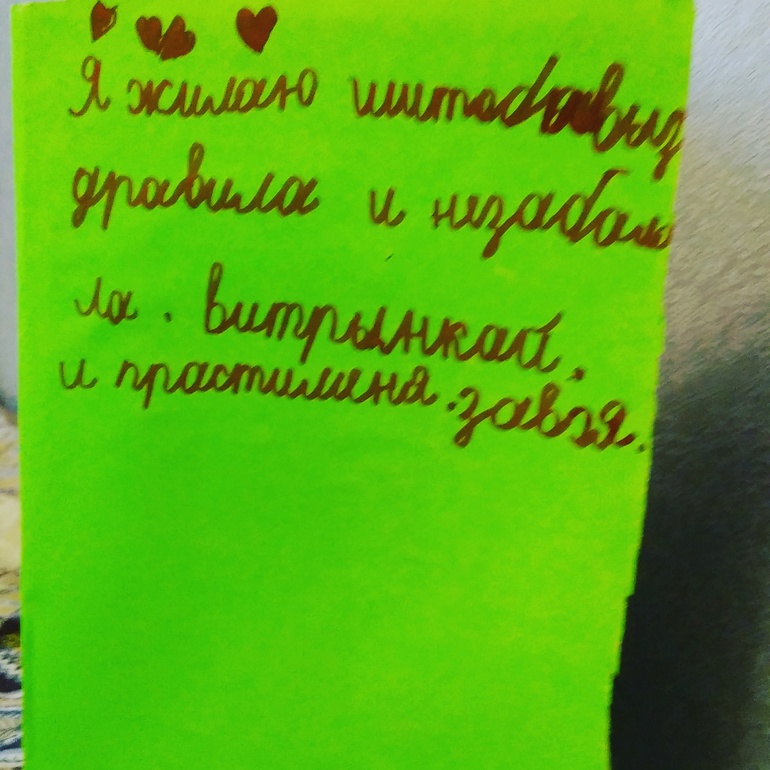 Я жилаю шитобавыз
дравила и незабала
ла. витрынкай.
и прастименя. завзя.